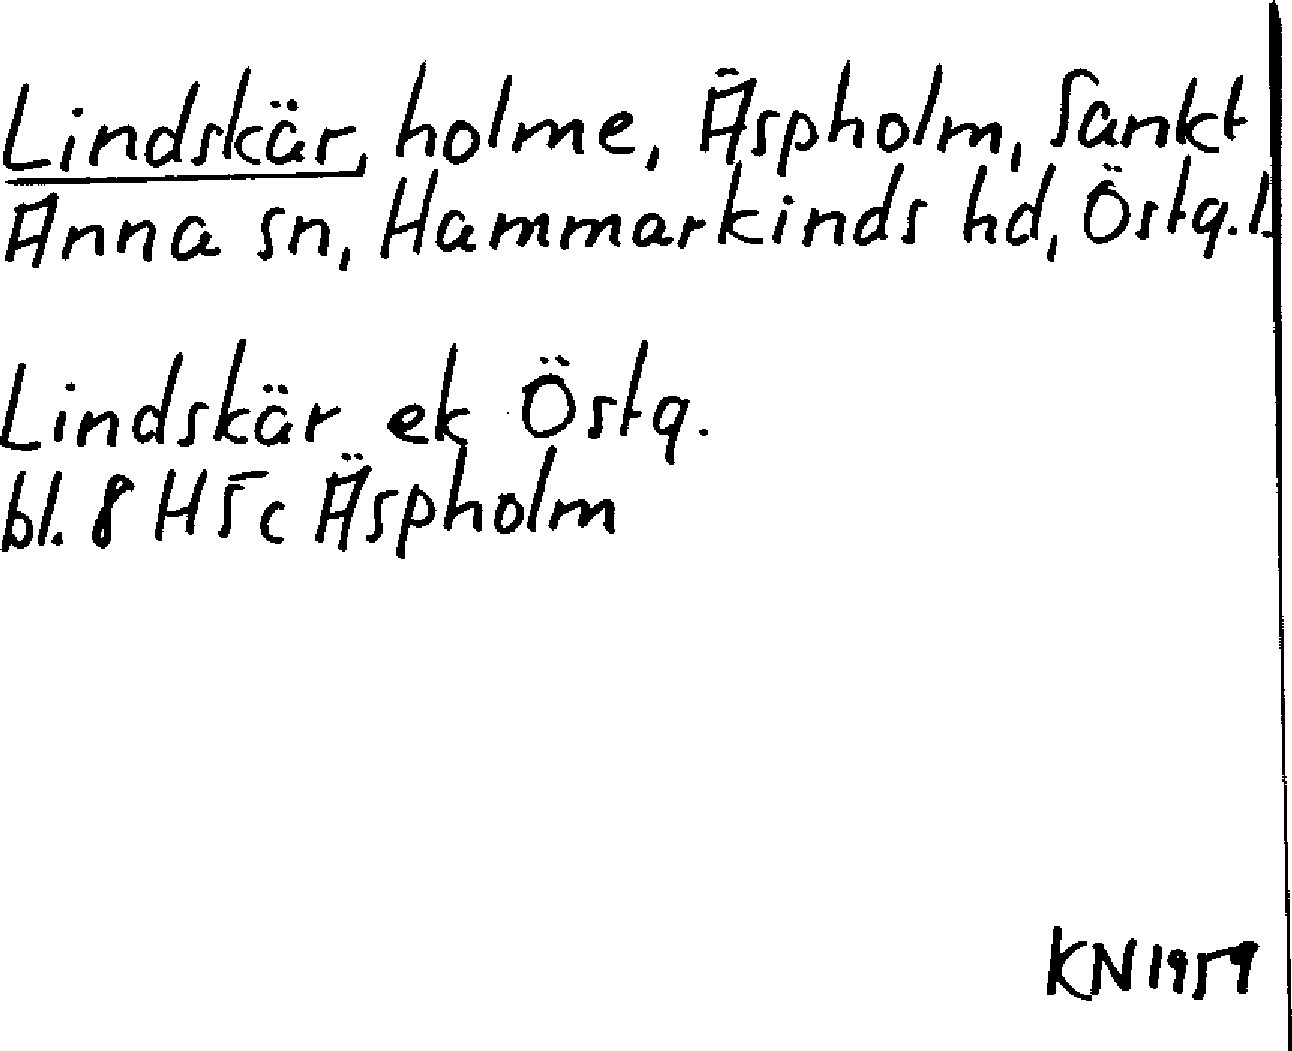 Lindskär, holme, Äspholm, Sankt
Anna sn, Hammarkinds hd, Östg.l.
Lindskär ek Östg.
bl. 8 H5c Äspholm
KN 1959